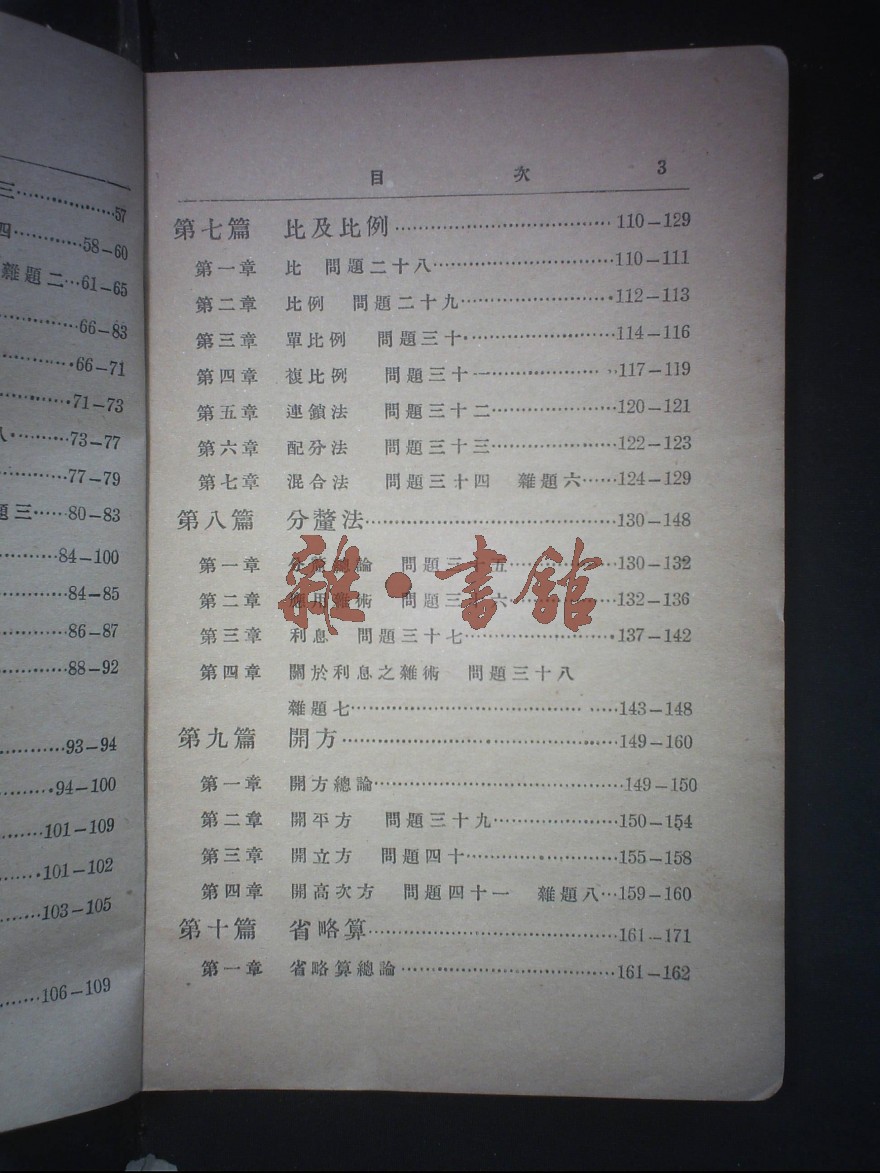 三……57
四……58—60
雜題二…61—65
……66—83
……66—71
……71—73
……73—77
……77—79
題三……80—83
……84—100
……84—85
……86—87
……88—92
……93—94
……94—100
……101—109
……101—102
……103—105
……106—109
目 次 3
第七篇 比及比例……110—129
第一章 比 問題二十八……110—111
第二章 比例 問題二十九……112—113
第三章 單比例 問題三十……114—116
第四章 複比例 問題三十一……117—119
第五章 連鎖法 問題三十二……120—121
第六章 配分法 問題三十三……122—123
第七章 混合法 問題三十四 雜題六……124—129
第八篇 分釐法……130—148
第一章 分釐總論 問題三十五……130—132
第二章 應用雜術 問題三十六……132—136
第三章 利息 問題三十七……137—142
第四章 關於利息之雜術 問題三十八
雜題七……143—148
第九篇 開方……149—160
第一章 開方總論……149—150
第二章 開平方 問題三十九……150—154
第三章 開立方 問題四十……155—158
第四章 開高次方 問題四十一 雜題八…159—160
第十篇 省略算……161—171
第一章 省略算總論……161—162
雜·書館